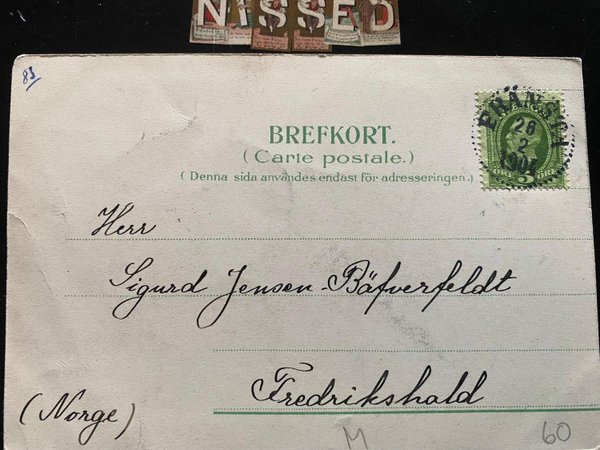 NISSED
83
BREFKORT.
(Carte postale.)
(Denna sida användes endast för adresseringen.)
FRÄNSTA
26
2
1904
5
Herr
Sigurd Jensen-Bäfverfeldt
Fredrikshald
(Norge)
M
60